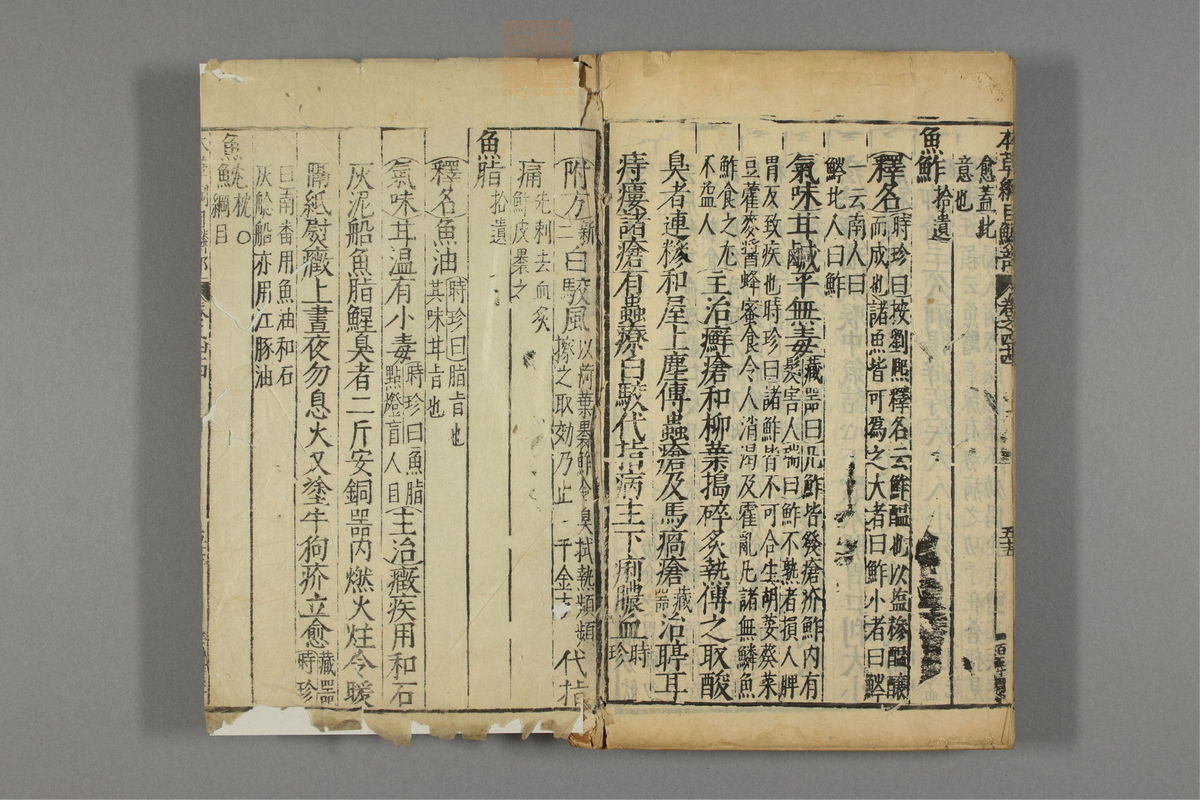 本草綱目鱗部 卷之四十四 五十五
愈蓋此
意也
魚鮓拾遺
釋名時珍曰按劉熈釋名云鮓醖也以塩糝醖釀
而成也諸魚皆可爲之大者曰鮓小者曰䰼
一云南人曰
䰼北人曰鮓
氣味甘鹹平無毒藏器曰凡鮓皆發瘡疥鮓內有
髮害人瑞曰鮓不熟者損人脾
胃反致疾也時珍曰諸鮓皆不可合生胡荽葵菜
豆藿麥醤蜂蜜食令人消渴及霍亂凡諸無鱗魚
鮓食之尤
不益人
主治癬瘡和柳葉搗碎炙熱傅之取酸
臭者連糝和屋上塵傅蟲瘡及馬瘑瘡藏器治聤耳
痔瘻諸瘡有蟲療白駮代指病主下痢膿血時珍
附方新二白駮風以荷葉裹鮓令臭拭熱頻頻
擦之取効乃止千金方代指
痛先刺去血炙
鮓皮裹之
魚脂拾遺
釋名魚油時珍曰脂旨也
其味甘旨也
氣味甘溫有小毒時珍曰魚脂
點燈盲人目主治癥疾用和石
灰泥船魚脂腥臭者二斤安銅器內燃火炷令暖
隔紙熨癥上晝夜勿息火又塗牛狗疥立愈藏器
時珍
曰南番用魚油和石
灰艌船亦用江豚油
魚魫綱目
枕〇